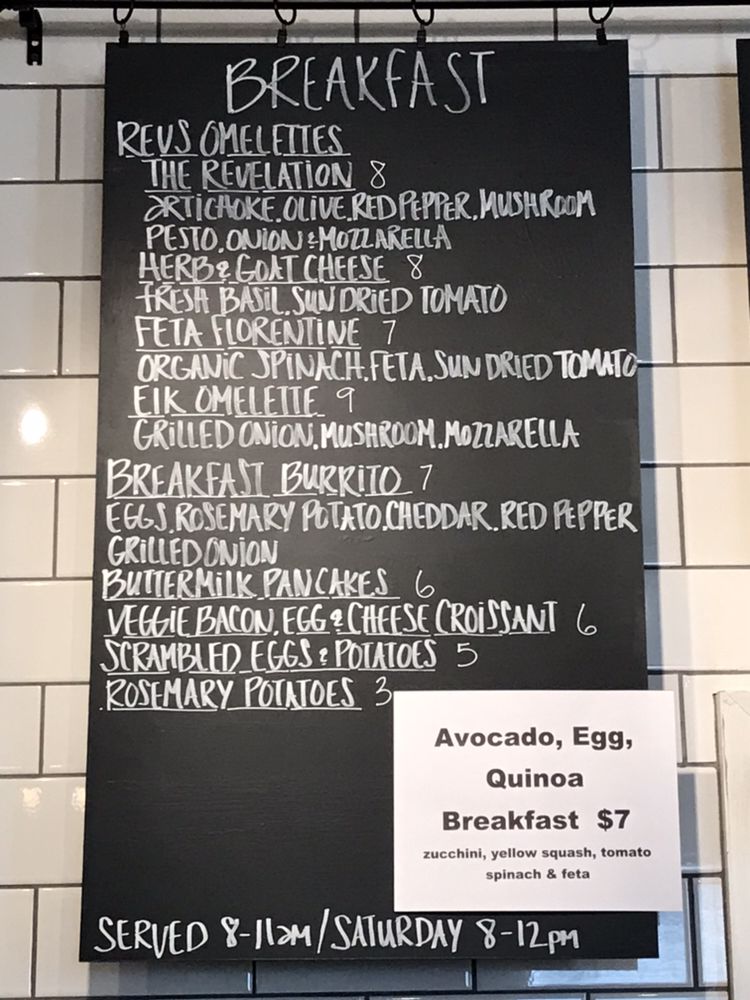 BREAKFAST
REVS OMELETTES
THE REVELATION 8
ARTICHOKE.OLIVE.RED PEPPER.MUSHROOM
PESTO.ONION & MOZZARELLA
HERB & GOAT CHEESE 8
FRESH BASIL.SUN DRIED TOMATO
FETA FLORENTINE 7
ORGANIC SPINACH.FETA.SUN DRIED TOMATO
EIK OMELETTE 9
GRILLED ONION.MUSHROOM.MOZZARELLA
BREAKFAST BURRITO 7
EGGS.ROSEMARY POTATO.CHEDDAR.RED PEPPER
GRILLED ONION
BUTTERMILK PANCAKES 6
VEGGIE BACON, EGG & CHEESE CROISSANT 6
SCRAMBLED EGGS & POTATOES 5
ROSEMARY POTATOES 3
Avocado, Egg,
Quinoa
Breakfast $7
zucchini, yellow squash, tomato
spinach & feta
SERVED 8-11AM/SATURDAY 8-12PM